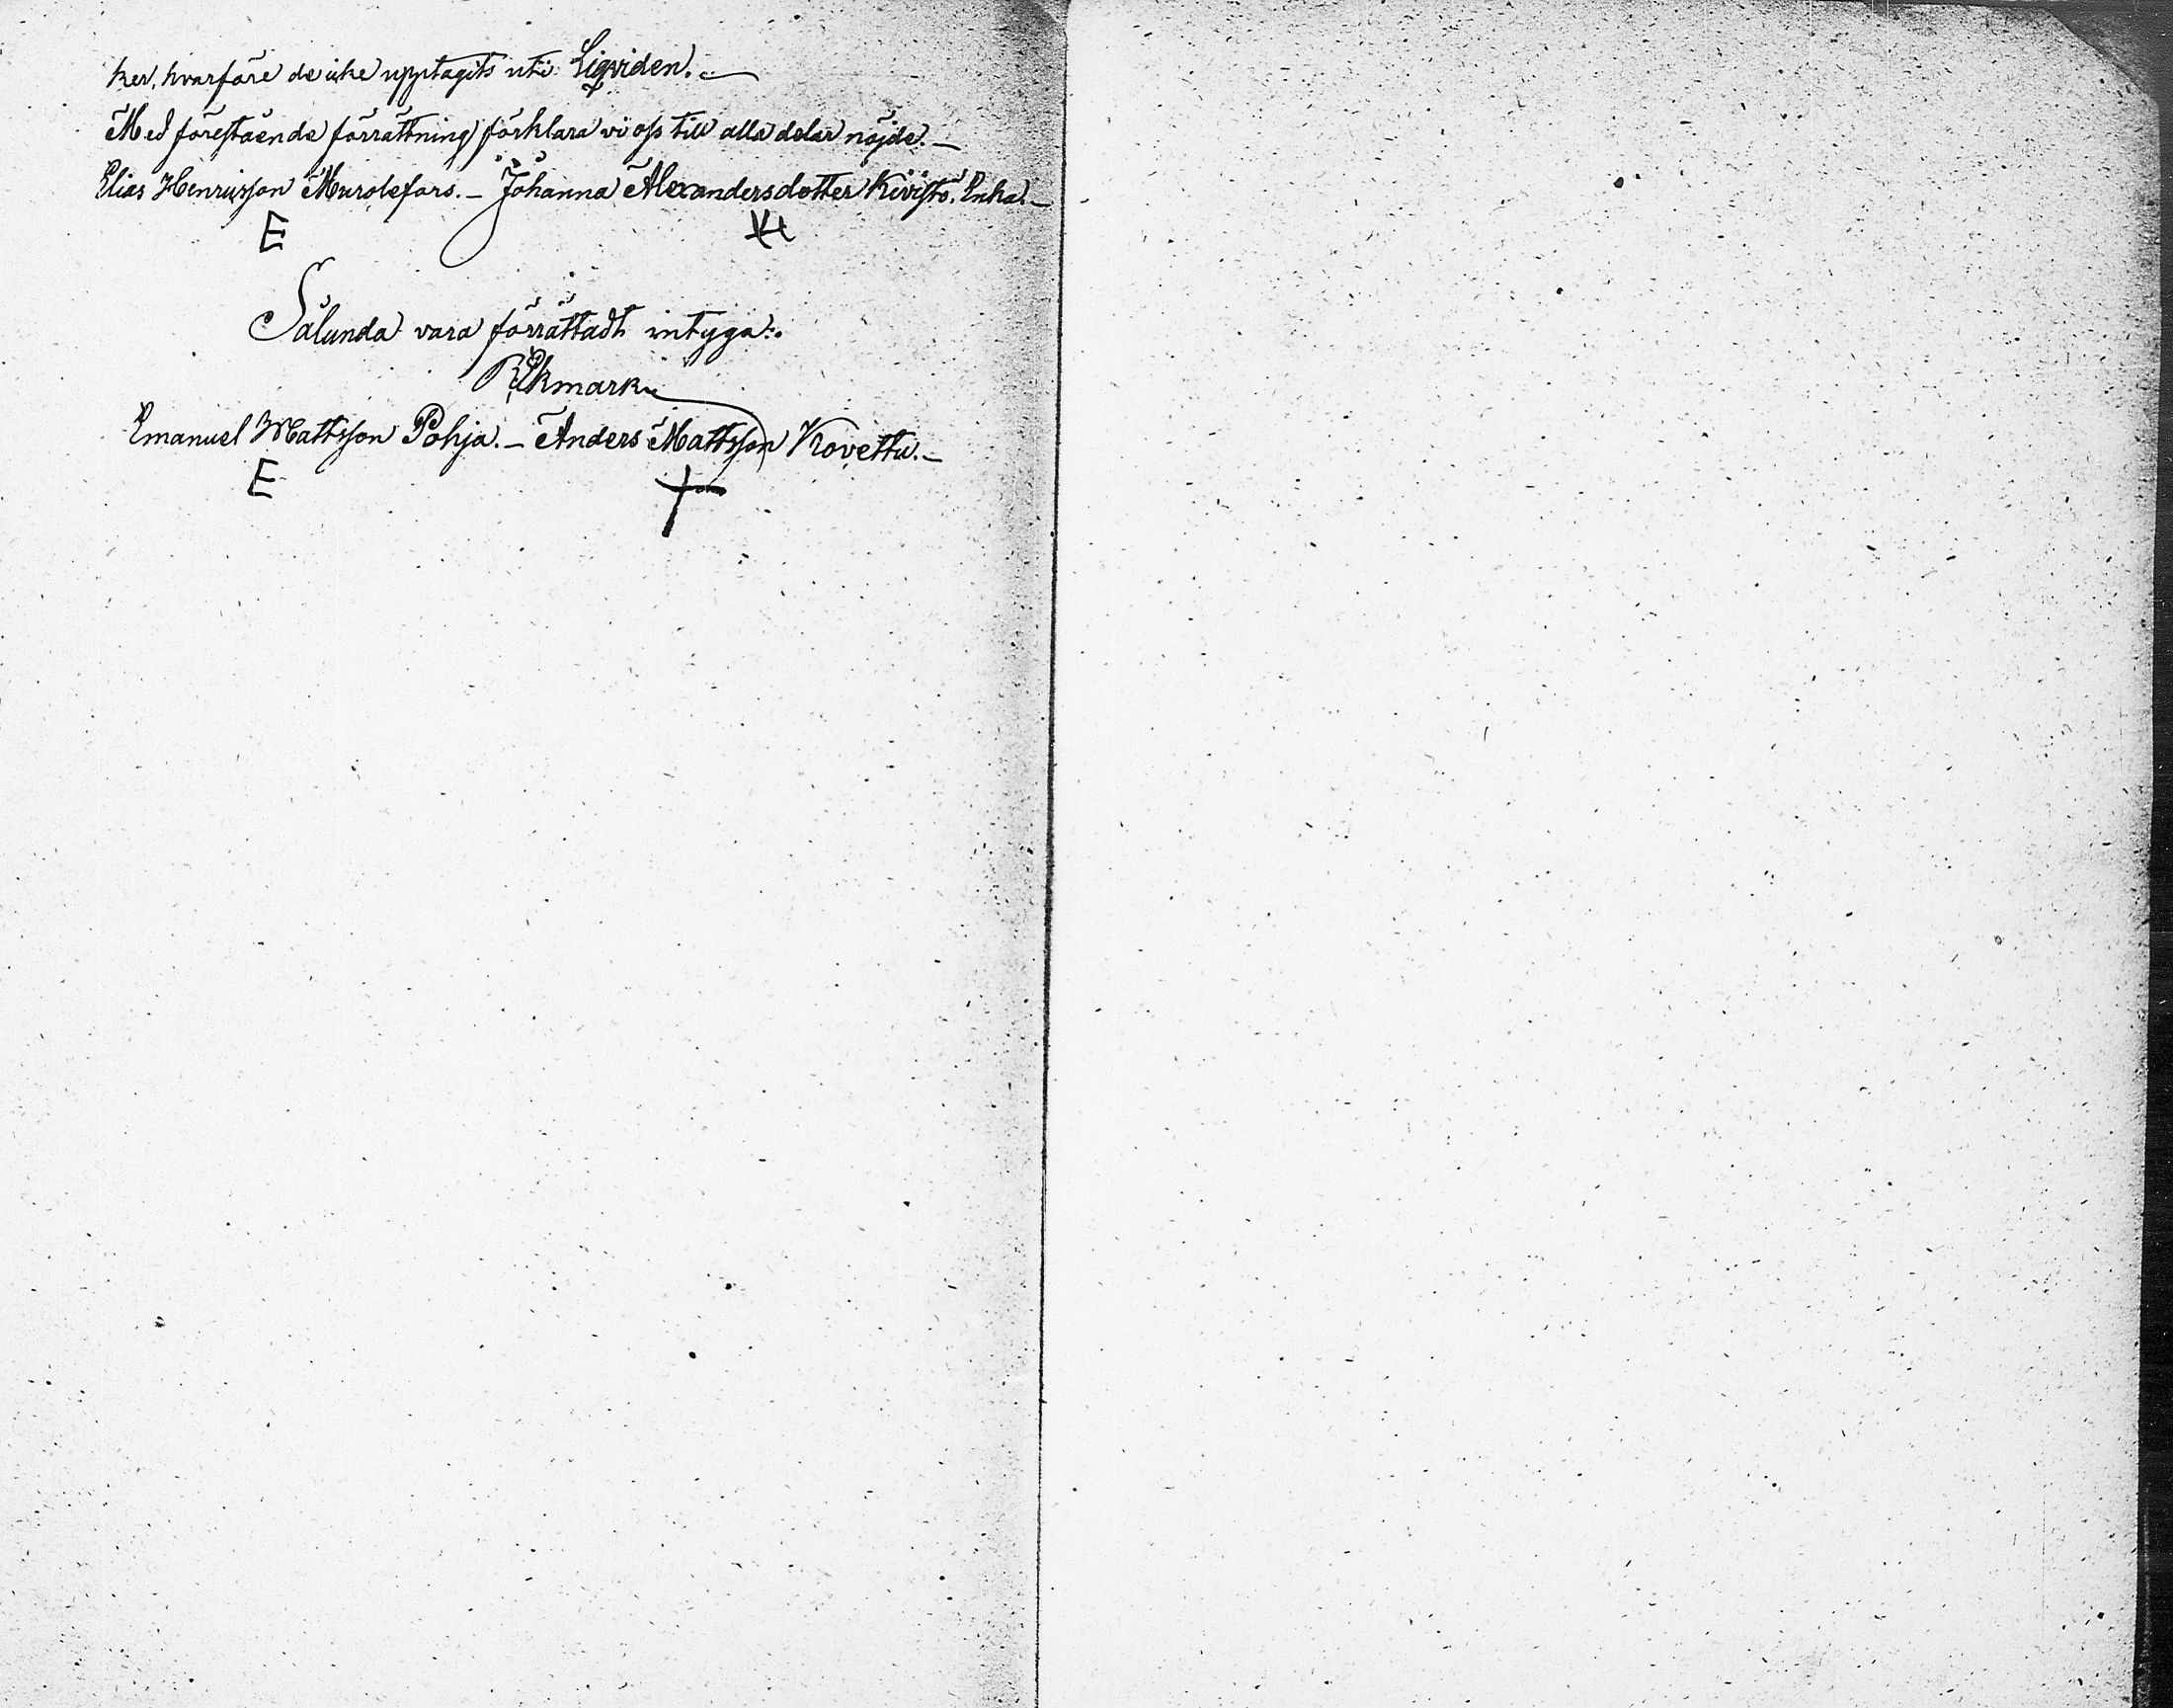 ker, hvarföre de icke upptagits uti Liqviden. —
Med förestående förrättning förklara vi oss till alla delar nöjde. —
Elias Henricsson Murolefors. — Johanna Alexandersdotter Kivistö. Enka. —
E
Sålunda vara förrättadt intyga:
Emanuel Mattsson Pohja. — Anders Mattsson Kovettu. —
E